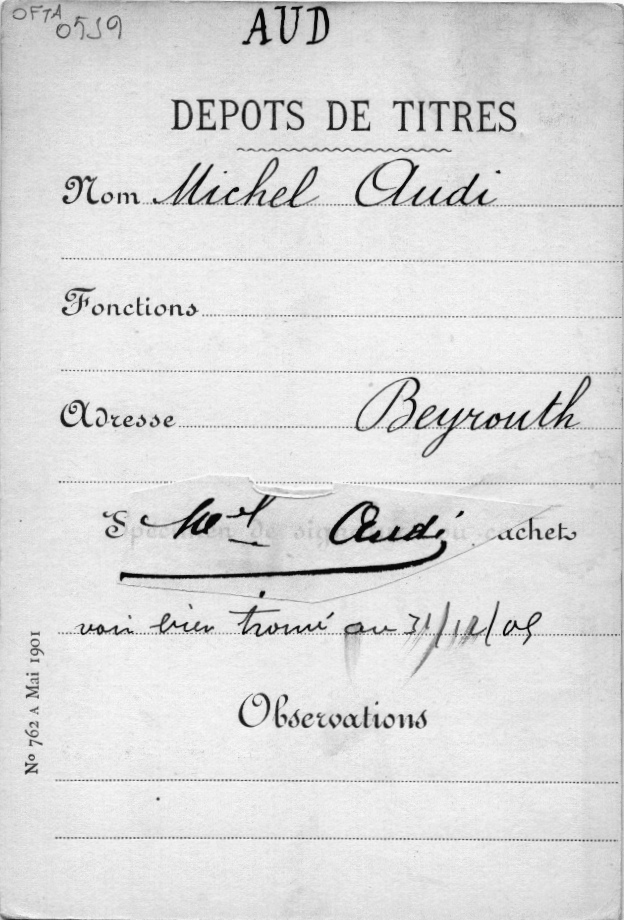 OFTA 0519
AUD
DEPOTS DE TITRES
Nom Michel Audi
Fonctions
Adresse Beyrouth
Spécimen de signature ou cachet
Mel Audi
voir bien trouvé au 31/12/05
Observations
No 762 A Mai 1901